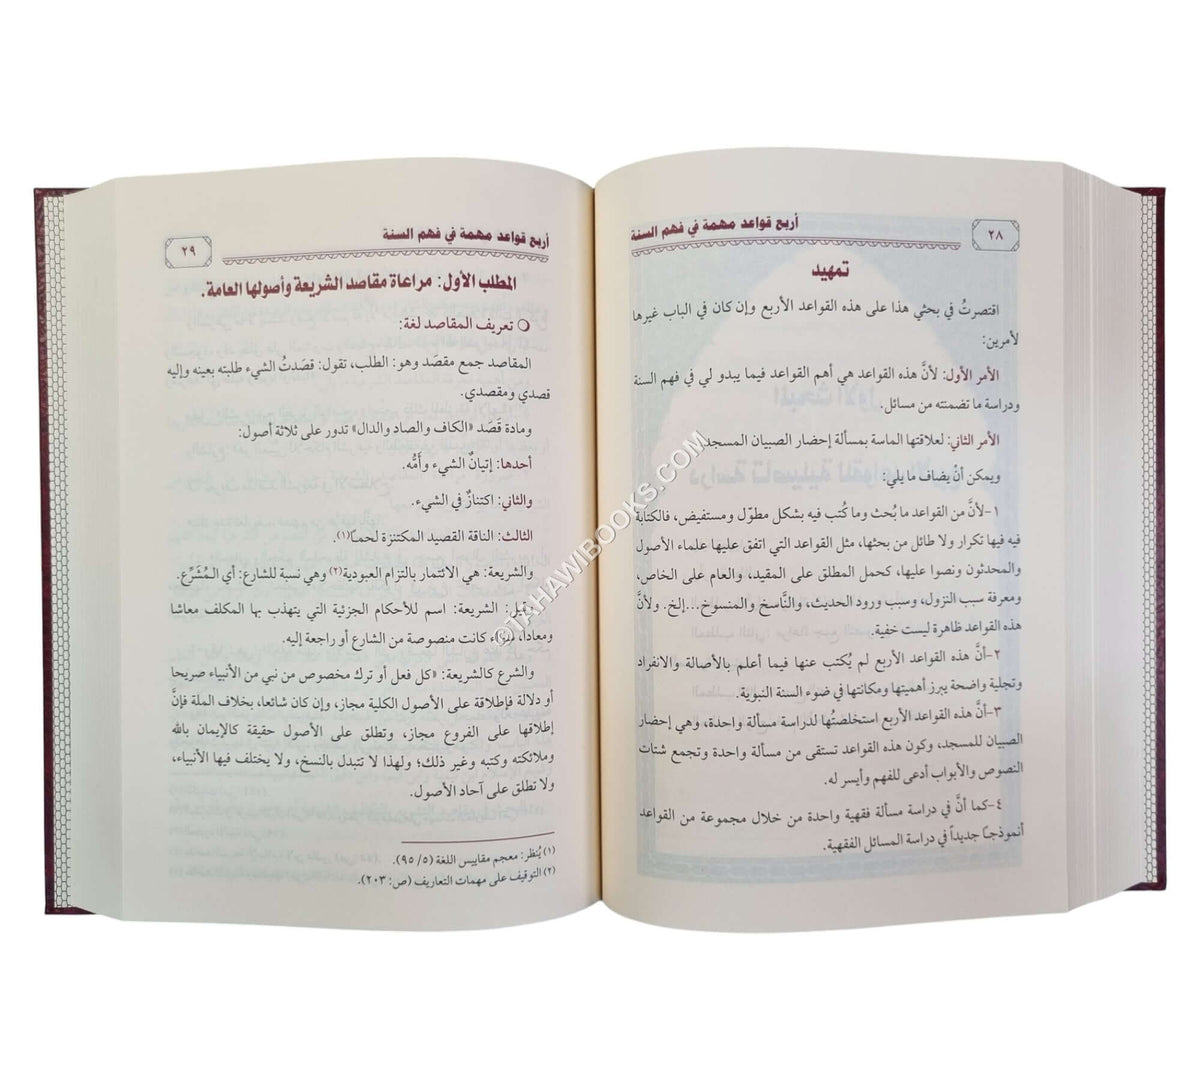 أربع قواعد مهمة في فهم السنة
٢٨
تمهيد
اقتصرتُ في بحثي هذا على هذه القواعد الأربع وإن كان في الباب غيرها
لأمرين:
الأمر الأول: لأنَّ هذه القواعد هي أهم القواعد فيما يبدو لي في فهم السنة
ودراسة ما تضمنته من مسائل.
الأمر الثاني: لعلاقتها الماسة بمسألة إحضار الصبيان المسجد.
ويمكن أنْ يضاف ما يلي:
١-لأنَّ من القواعد ما بُحث وما كُتب فيه بشكل مطوّل ومستفيض، فالكتابة
فيه فيها تكرار ولا طائل من بحثها، مثل القواعد التي اتفق عليها علماء الأصول
والمحدثون ونصوا عليها، كحمل المطلق على المقيد، والعام على الخاص،
ومعرفة سبب النزول، وسبب ورود الحديث، والنَّاسخ والمنسوخ...إلخ. ولأنَّ
هذه القواعد ظاهرة ليست خفية.
٢-أنَّ هذه القواعد الأربع لم يُكتب عنها فيما أعلم بالأصالة والانفراد
وتجلية واضحة يبرز أهميتها ومكانتها في ضوء السنة النبوية.
٣-أنَّ هذه القواعد الأربع استخلصتُها لدراسة مسألة واحدة، وهي إحضار
الصبيان للمسجد، وكون هذه القواعد تستقى من مسألة واحدة وتجمع شتات
النصوص والأبواب أدعى للفهم وأيسر له.
٤-كما أنَّ في دراسة مسألة فقهية واحدة من خلال مجموعة من القواعد
أنموذجـًا جديداً في دراسة المسائل الفقهية.
أربع قواعد مهمة في فهم السنة
٢٩
المطلب الأول: مراعاة مقاصد الشريعة وأصولها العامة.
تعريف المقاصد لغة:
المقاصد جمع مقصَد وهو: الطلب، تقول: قصَدتُ الشيء طلبته بعينه وإليه
قصدي ومقصدي.
ومادة قَصَد «الكاف والصاد والدال» تدور على ثلاثة أصول:
أحدها: إتيانٌ الشيء وأَمُّه.
والثاني: اكتنازٌ في الشيء.
الثالث: الناقة القصيد المكتنزة لحمـًا(١).
والشريعة: هي الائتمار بالتزام العبودية(٢) وهي نسبة للشارع: أي الـمُشَرِّع.
وقيل: الشريعة: اسم للأحكام الجزئية التي يتهذب بها المكلف معاشا
ومعاداً، سواء كانت منصوصة من الشارع أو راجعة إليه.
والشرع كالشريعة: «كل فعل أو ترك مخصوص من نبي من الأنبياء صريحا
أو دلالة فإطلاقة على الأصول الكلية مجاز، وإن كان شائعا، بخلاف الملة فإنَّ
إطلاقها على الفروع مجاز، وتطلق على الأصول حقيقة كالإيمان بالله
وملائكته وكتبه وغير ذلك؛ ولهذا لا تتبدل بالنسخ، ولا يختلف فيها الأنبياء،
ولا تطلق على آحاد الأصول.
(١) يُنظر: معجم مقاييس اللغة (٥/ ٩٥).
(٢) التوقيف على مهمات التعاريف (ص: ٢٠٣).
©TAHAWIBOOKS.COM